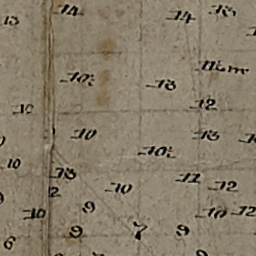 14 14
13
10½ 13
12
10
10 13
10½
10
13 11 12
10
9 10 12
10
9 7 9
6
9